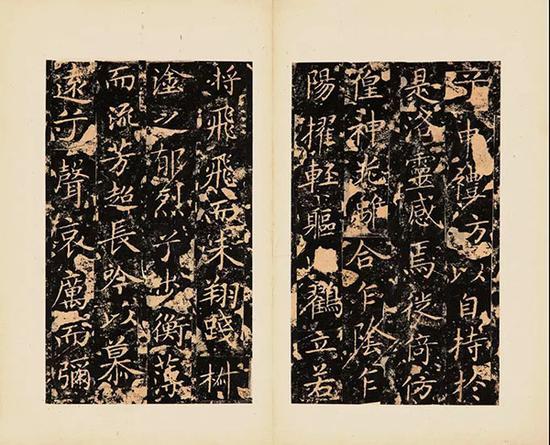 兮申禮方以自持於
是洛靈感焉徙倚仿
偟神光離合乍陰乍
陽擢輕軀鸛立若
將飛飛而未翔踐椒
塗之郁烈兮步衡薄
而流芳超長吟以慕
遠兮聲哀厲而彌